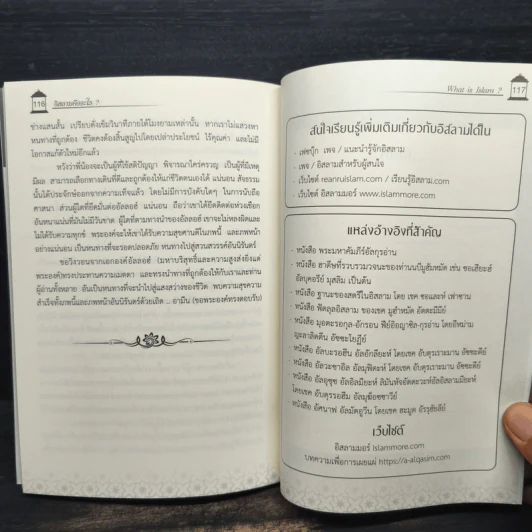 116
อิสลามคืออะไร ?
ช่างแสนสั้น เปรียบดั่งเข็มวินาทีภายใต้โมงยามเหล่านั้น หากเราไม่แสวงหา
หนทางที่ถูกต้อง ชีวิตคงต้องสิ้นสูญไปโดยเปล่าประโยชน์ ไร้คุณค่า และไม่มี
โอกาสแก้ตัวใหม่อีกแล้ว
หวังว่าพี่น้องจะเป็นผู้ที่ใช้สติปัญญา พิจารณาใคร่ครวญ เป็นผู้ที่มีเหตุ
มีผล สามารถเลือกทางเดินที่ดีและถูกต้องให้แก่ชีวิตตนเองได้ แน่นอน สัจธรรม
นั้นได้ประจักษ์ออกจากความเท็จแล้ว โดยไม่มีการบังคับใดๆ ในการนับถือ
ศาสนา ส่วนผู้ใดที่ยึดมั่นต่ออัลลอฮ์ แน่นอน ถือว่าเขาได้ยึดติดต่อห่วงเชือก
อันหนาแน่นที่มันไม่มีวันขาด ผู้ใดที่ตามทางนำของอัลลอฮ์ เขาจะไม่หลงผิดและ
ไม่ได้รับความทุกข์ พระองค์จะให้เขาได้รับความสุขศานติในภพนี้ และภพหน้า
อย่างแน่นอน เป็นหนทางที่จะรอดปลอดภัย หนทางไปสู่สวนสวรรค์อันนิรันดร์
ขอวิงวอนจากเอกองค์อัลลอฮ์ (มหาบริสุทธิ์และความสูงส่งยิ่งแด่
พระองค์)ทรงประทานความเมตตา และทรงนำทางที่ถูกต้องให้กับเราและท่าน
ผู้อ่านทั้งหลาย อันเป็นหนทางที่จะนำไปสู่แสงสว่างของชีวิต พบความสุขความ
สำเร็จทั้งภพนี้และภพหน้าอันนิรันดร์ด้วยเถิด .. อามีน (ขอพระองค์ทรงตอบรับ)
What is Islam ?
117
สนใจเรียนรู้เพิ่มเติมเกี่ยวกับอิสลามได้ใน
- เฟซบุ๊ก เพจ / แนะนำรู้จักอิสลาม
- เพจ / อิสลามสำหรับผู้สนใจ
- เว็บไซต์ reanruislam.com / เรียนรู้อิสลาม.com
- เว็บไซต์ อิสลามมอร์ www.islammore.com
แหล่งอ้างอิงที่สำคัญ
- หนังสือ พระมหาคัมภีร์อัลกุรอ่าน
- หนังสือ ฮาดีษที่รวบรวมวจนะของท่านนบีมูฮัมหมัด เช่น ซอเฮียะฮ์
อัลบุคอรีย์ มุสลิม เป็นต้น
- หนังสือ ฐานะของสตรีในอิสลาม โดย เชค ซอและห์ เฟาซาน
- หนังสือ ฟัตลุลอิสลาม ของเชค มูฮำหมัด อัตตะมีมีย์
- หนังสือ อัลบะรอฮีน อัลอักลียะห์ โดยเชค อับดุรเราะมาน อัซซะดีย์
โดยเชค อับดุรรอฮีม อัลมุฆ๊อซซาวีย์
เว็บไซต์
อิสลามมอร์ islammore.com
บทความเพื่อการเผยแผ่ https://a-alqasim.com